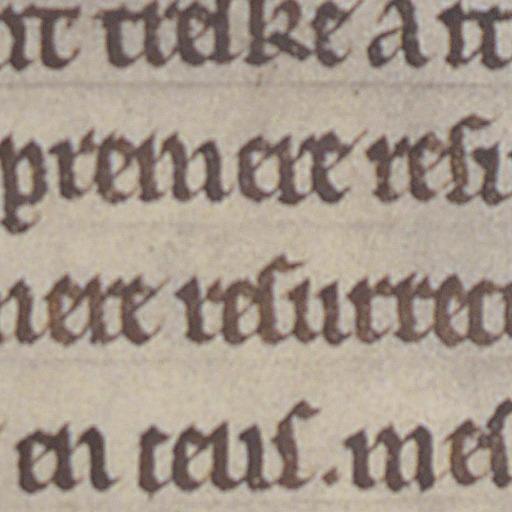 treske a
premere resu
mere resurrec
en ceus. mes